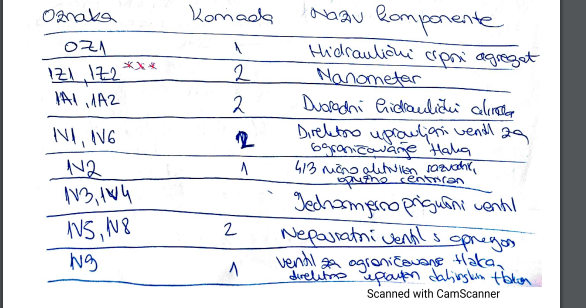 Oznaka Komada Naziv komponente
OZ1 1 Hidraulični crpni agregat
1Z1, 1Z2 *** 2 Manometar
1A1, 1A2 2 Dvoradni hidraulični cilindar
1V1, 1V6 2 Direktno upravljani ventil za
ograničavanje tlaka
1V2 1 4/3 ručno aktiviran razvodnik,
opružno centriran
1V3, 1V4 Jednosmjerno prigušni ventil
1V5, 1V8 2 Nepovratni ventil s oprugom
1V9 1 Ventil za ograničavanje tlaka,
direktno upravljan daljinskim tlakom
Scanned with CamScanner